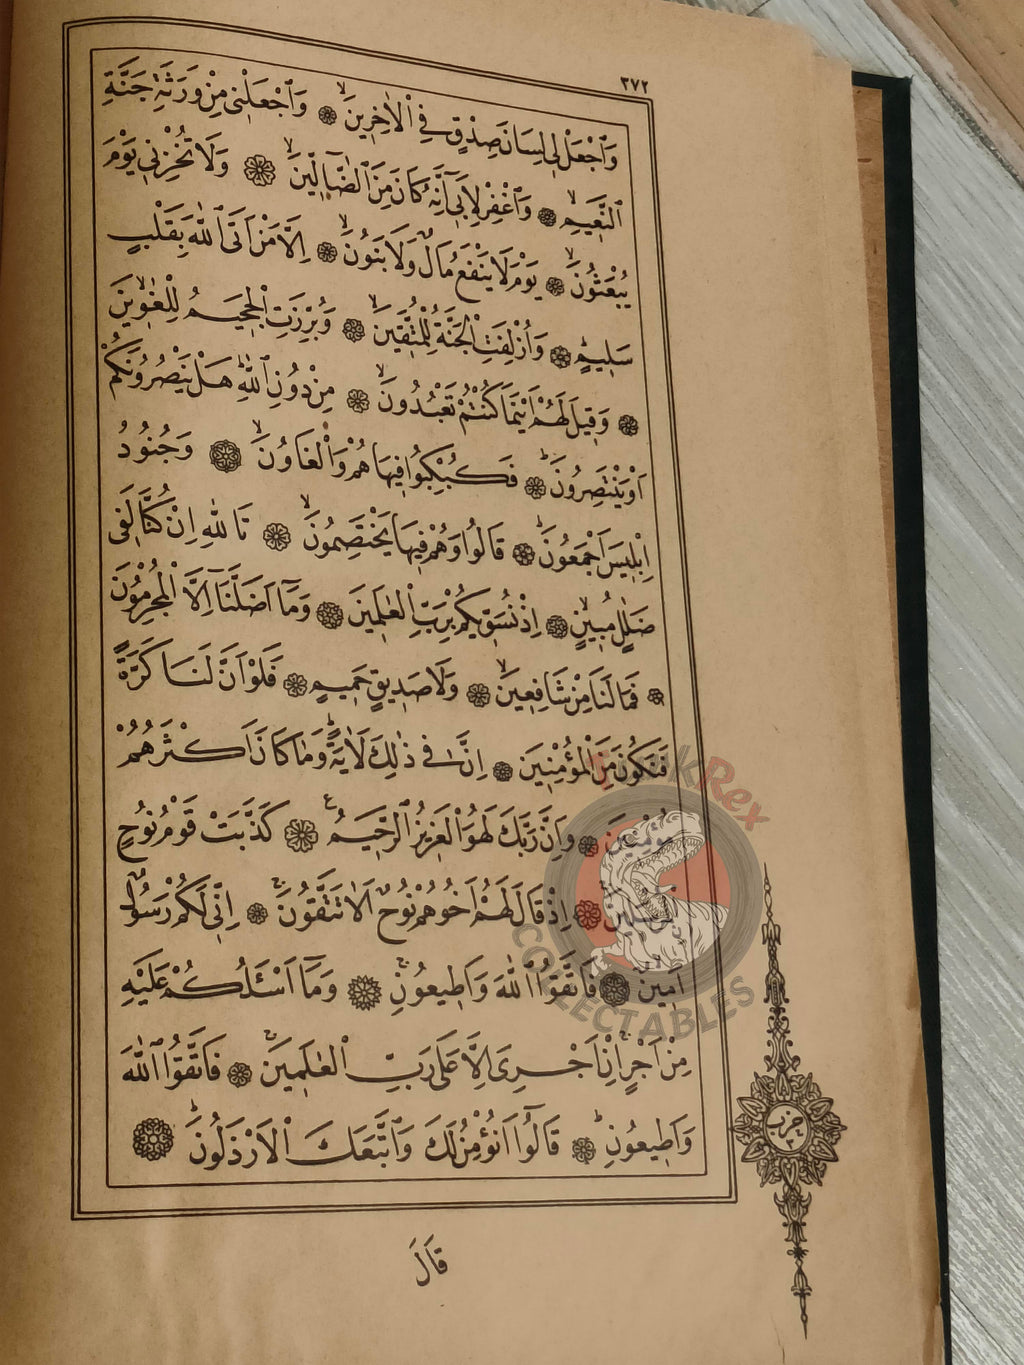 ٣٧٢
وَٱجْعَلْ لِى لِسَانَ صِدْقٍ فِى ٱلْاٰخِرِينَۙ وَٱجْعَلْنِى مِنْ وَرَثَةِ جَنَّةِ
ٱلنَّعِيمِۙ وَٱغْفِرْ لِاَبِىٓ اِنَّهُ كَانَ مِنَ ٱلضَّٓالِّينَۙ وَلَا تُخْزِنِى يَوْمَ
يُبْعَثُونَۙ يَوْمَ لَا يَنْفَعُ مَالٌ وَلَا بَنُونَۙ اِلَّا مَنْ اَتَى ٱللّٰهَ بِقَلْبٍ
سَلِيمٍۜ وَاُزْلِفَتِ ٱلْجَنَّةُ لِلْمُتَّقِينَۙ وَبُرِّزَتِ ٱلْجَحِيمُ لِلْغَاوِينَۙ
وَقِيلَ لَهُمْ اَيْنَمَا كُنْتُمْ تَعْبُدُونَۙ مِنْ دُونِ ٱللّٰهِۜ هَلْ يَنْصُرُونَكُمْ
اَوْ يَنْتَصِرُونَۜ فَكُبْكِبُوا فِيهَا هُمْ وَٱلْغَاوُنَۙ وَجُنُودُ
اِبْلِيسَ اَجْمَعُونَۜ قَالُوا وَهُمْ فِيهَا يَخْتَصِمُونَۙ تَاللّٰهِ اِنْ كُنَّا لَفِى
ضَلَالٍ مُبِينٍۙ اِذْ نُسَوِّيكُمْ بِرَبِّ ٱلْعَالَمِينَ وَمَٓا اَضَلَّنَٓا اِلَّا ٱلْمُجْرِمُونَ
فَمَا لَنَا مِنْ شَافِعِينَۙ وَلَا صَدِيقٍ حَمِيمٍ فَلَوْ اَنَّ لَنَا كَرَّةً
فَنَكُونَ مِنَ ٱلْمُؤْمِنِينَ اِنَّ فِى ذٰلِكَ لَاٰيَةًۜ وَمَا كَانَ اَكْثَرُهُمْ
مُؤْمِنِينَ وَاِنَّ رَبَّكَ لَهُوَ ٱلْعَزِيزُ ٱلرَّحِيمُۧ كَذَّبَتْ قَوْمُ نُوحٍ
ٱلْمُرْسَلِينَۚ اِذْ قَالَ لَهُمْ اَخُوهُمْ نُوحٌ اَلَا تَتَّقُونَۚ اِنِّى لَكُمْ رَسُولٌ
اَمِينٌۙ فَاتَّقُوا ٱللّٰهَ وَاَطِيعُونِۚ وَمَٓا اَسْـَٔلُكُمْ عَلَيْهِ
مِنْ اَجْرٍۚ اِنْ اَجْرِىَ اِلَّا عَلٰى رَبِّ ٱلْعَالَمِينَۚ فَاتَّقُوا ٱللّٰهَ
وَاَطِيعُونِۜ قَالُٓوا اَنُؤْمِنُ لَكَ وَٱتَّبَعَكَ ٱلْاَرْذَلُونَۜ
حزب
قَالَ
COLLECTABLES